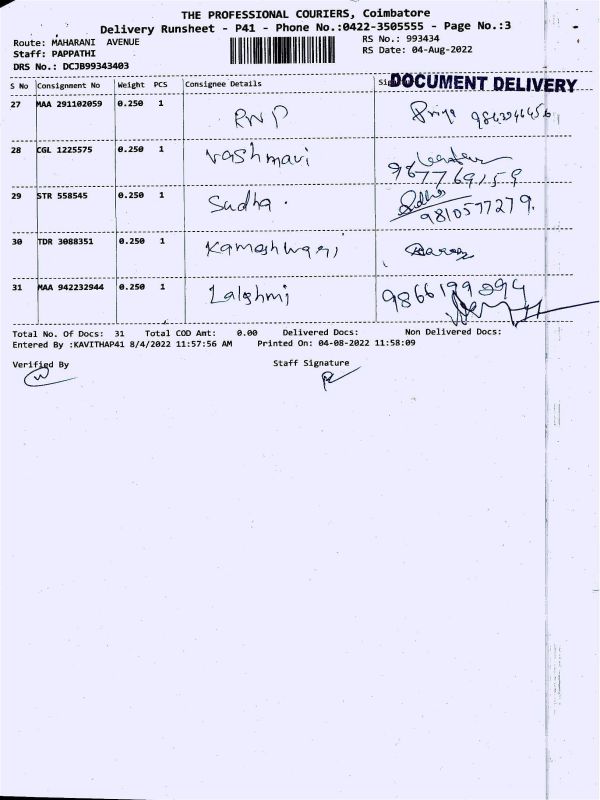 THE PROFESSIONAL COURIERS, Coimbatore
Delivery Runsheet - P41 - Phone No.:0422-3505555 - Page No.:3
Route: MAHARANI AVENUE
RS No.: 993434
Staff: PAPPATHI
RS Date: 04-Aug-2022
DRS No.: DCJB99343403
DOCUMENT DELIVERY
S No Consignment No Weight PCS Consignee Details
27 MAA 291102059 0.250 1 RNP Priya
28 CGL 1225575 0.250 1 Vashmavi
9877769159
29 STR 558545 0.250 1 Sudha.
9810577279.
30 TDR 3088351 0.250 1 Kameshwari
31 MAA 942232944 0.250 1 Lalshmi
Total No. Of Docs: 31 Total COD Amt: 0.00 Delivered Docs: Non Delivered Docs:
Entered By :KAVITHAP41 8/4/2022 11:57:56 AM Printed On: 04-08-2022 11:58:09
Verified By Staff Signature